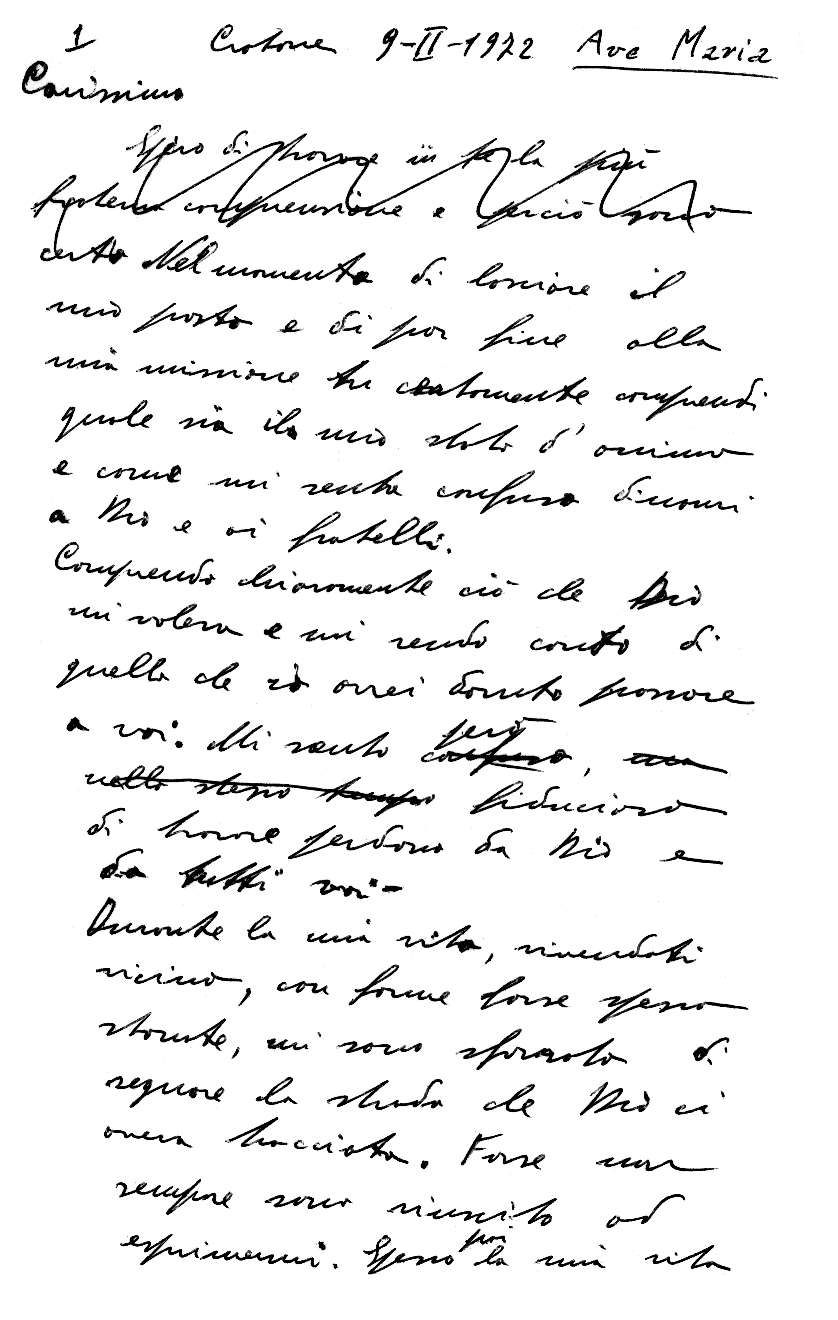 1 Crotone 9-II-1972 Ave Maria
Carissimo
Spero di trovare in te la più
fraterna comprensione e perciò sono
certo Nel momento di lasciare il
mio posto e di por fine alla
mia missione tu certamente comprendi
quale sia il mio stato d'animo
e come mi senta confuso dinanzi
a Dio e ai fratelli.
Comprendo chiaramente ciò che Dio
mi voleva e mi rendo conto di
quello che io avrei dovuto
a voi. Mi sento però confuso, ma
nello stesso tempo fiducioso
di trovare perdono da Dio e
da tutti voi-
Durante la mia vita, vivendoti
vicino, con forme forse spesso
storte, mi sono sforzato di
seguire la strada che Dio ci
aveva tracciata. Forse non
sempre sono riuscito ad
esprimermi. Spesso poi la mia vita